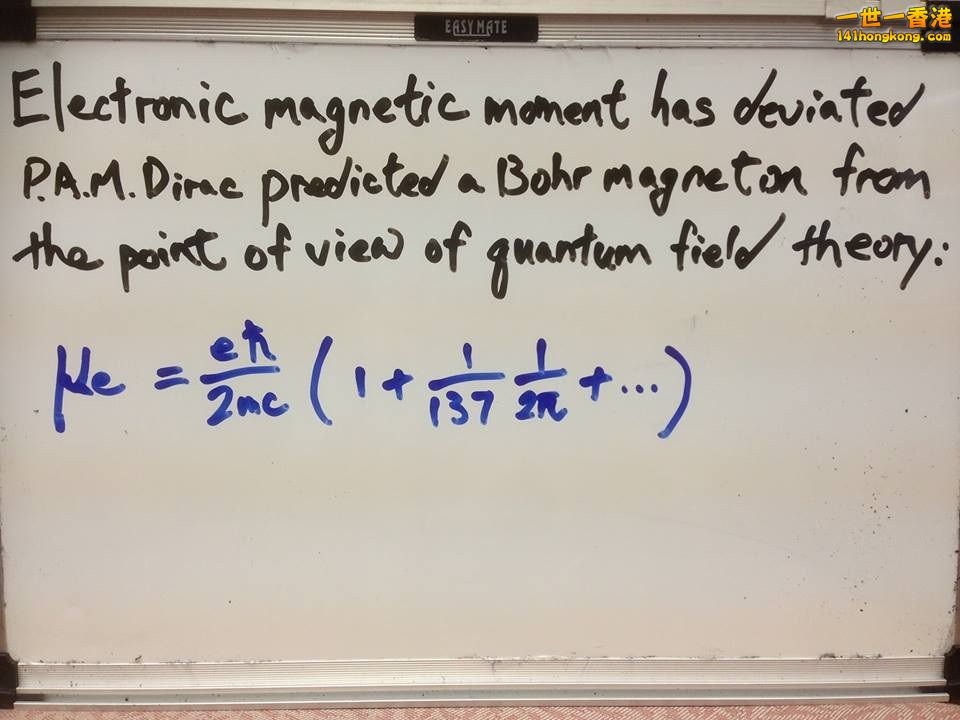 EASY MATE
一世一香港
141hongkong.com
Electronic magnetic moment has deviated
P.A.M. Dirac predicted a Bohr magneton from
the point of view of quantum field theory:
μe = eħ/2mc (1 + 1/137 1/2π + ...)